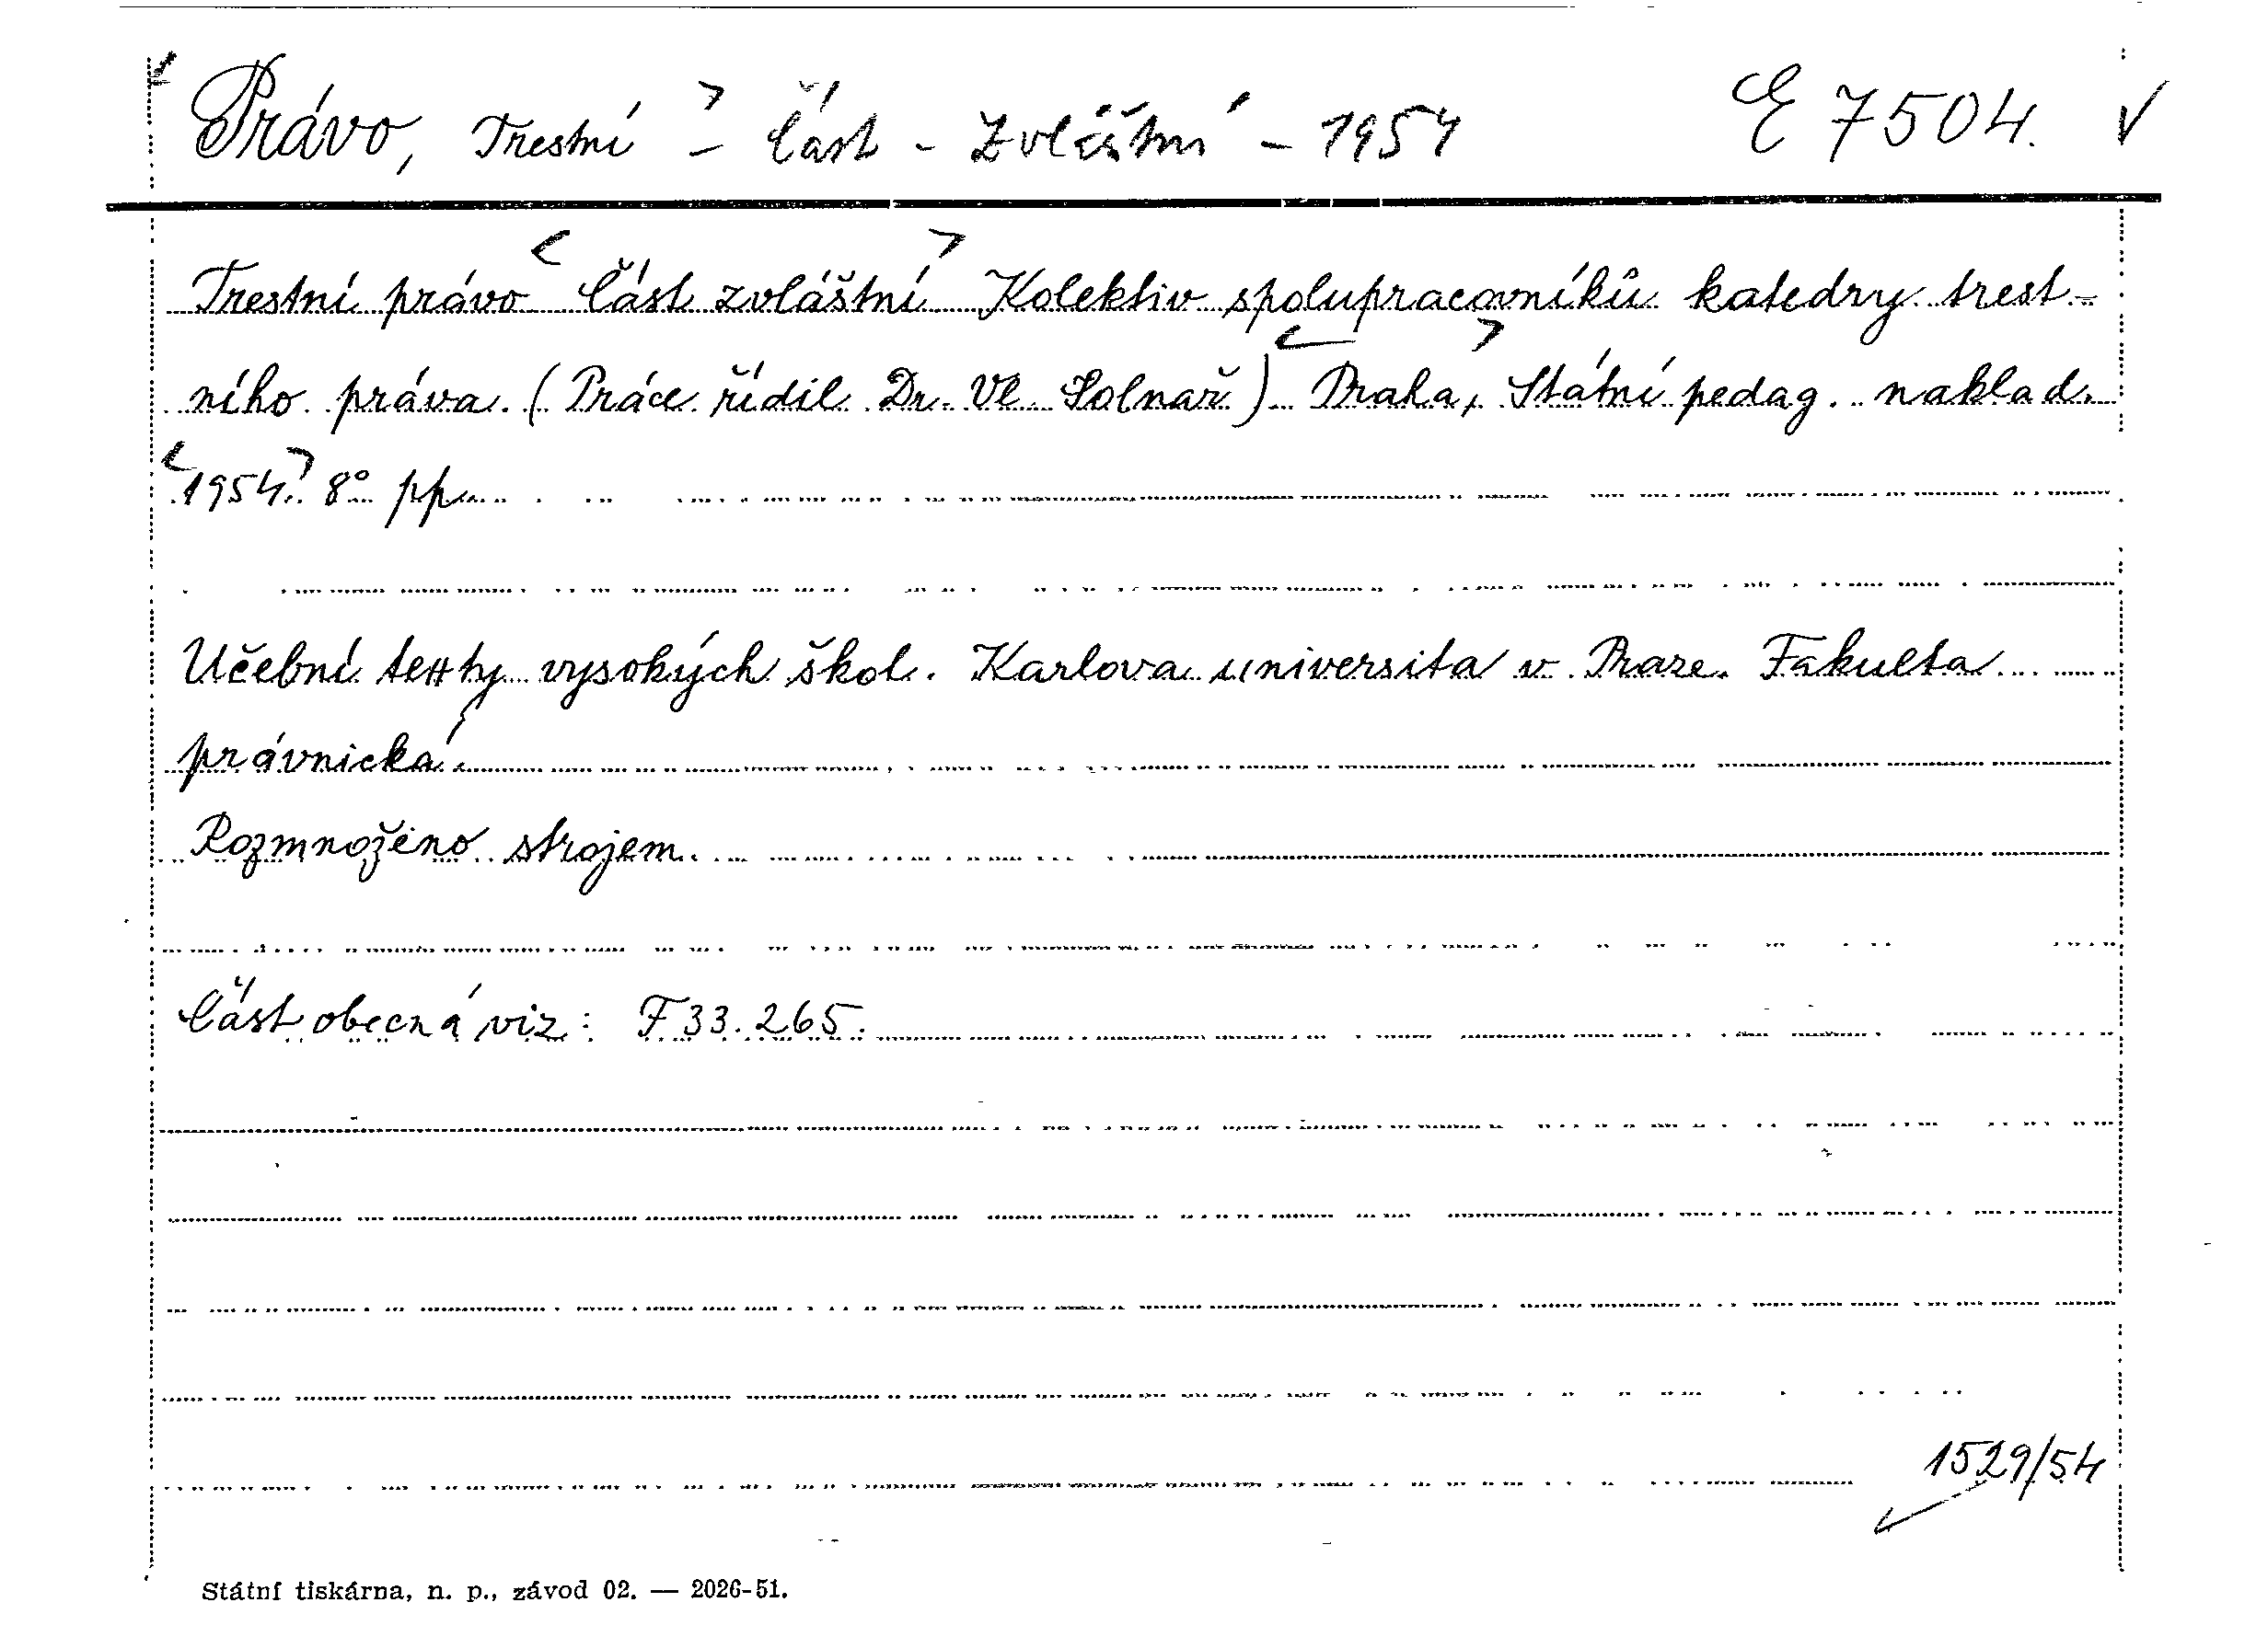 Právo, Trestní - Část - Zvláštní - 1954 E 7504. V
Trestní právo Část zvláštní Kolektiv spolupracovníků katedry trest-
ního práva. (Práce řídil Dr. Vl. Solnař) Praha, Státní pedag. naklad.
1954. 8° pp.
Učební texty vysokých škol. Karlova universita v Praze. Fakulta
právnická.
Rozmnoženo strojem.
Část obecná viz: F 33.265.
1529/54
Státní tiskárna, n. p., závod 02. — 2026-51.